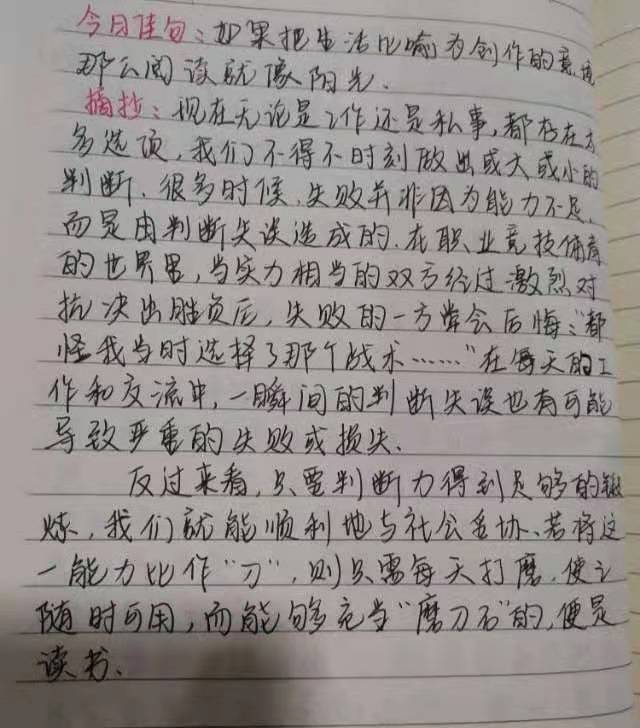 今日佳句：如果把生活比喻为创作的意境
那么阅读就像阳光.
摘抄：现在无论是工作还是私事,都存在太
多选项,我们不得不时刻做出或大或小的
判断.很多时候,失败并非因为能力不足,
而是由判断失误造成的.在职业竞技体育
的世界里,当实力相当的双方经过激烈对
抗决出胜负后,失败的一方常会后悔:“都
怪我当时选择了那个战术……”在每天的工
作和交流中,一瞬间的判断失误也有可能
导致严重的失败或损失.
反过来看,只要判断力得到足够的锻
炼,我们就能顺利地与社会妥协.若将这
一能力比作“刀”,则只需每天打磨,使之
随时可用,而能够充当“磨刀石”的,便是
读书.